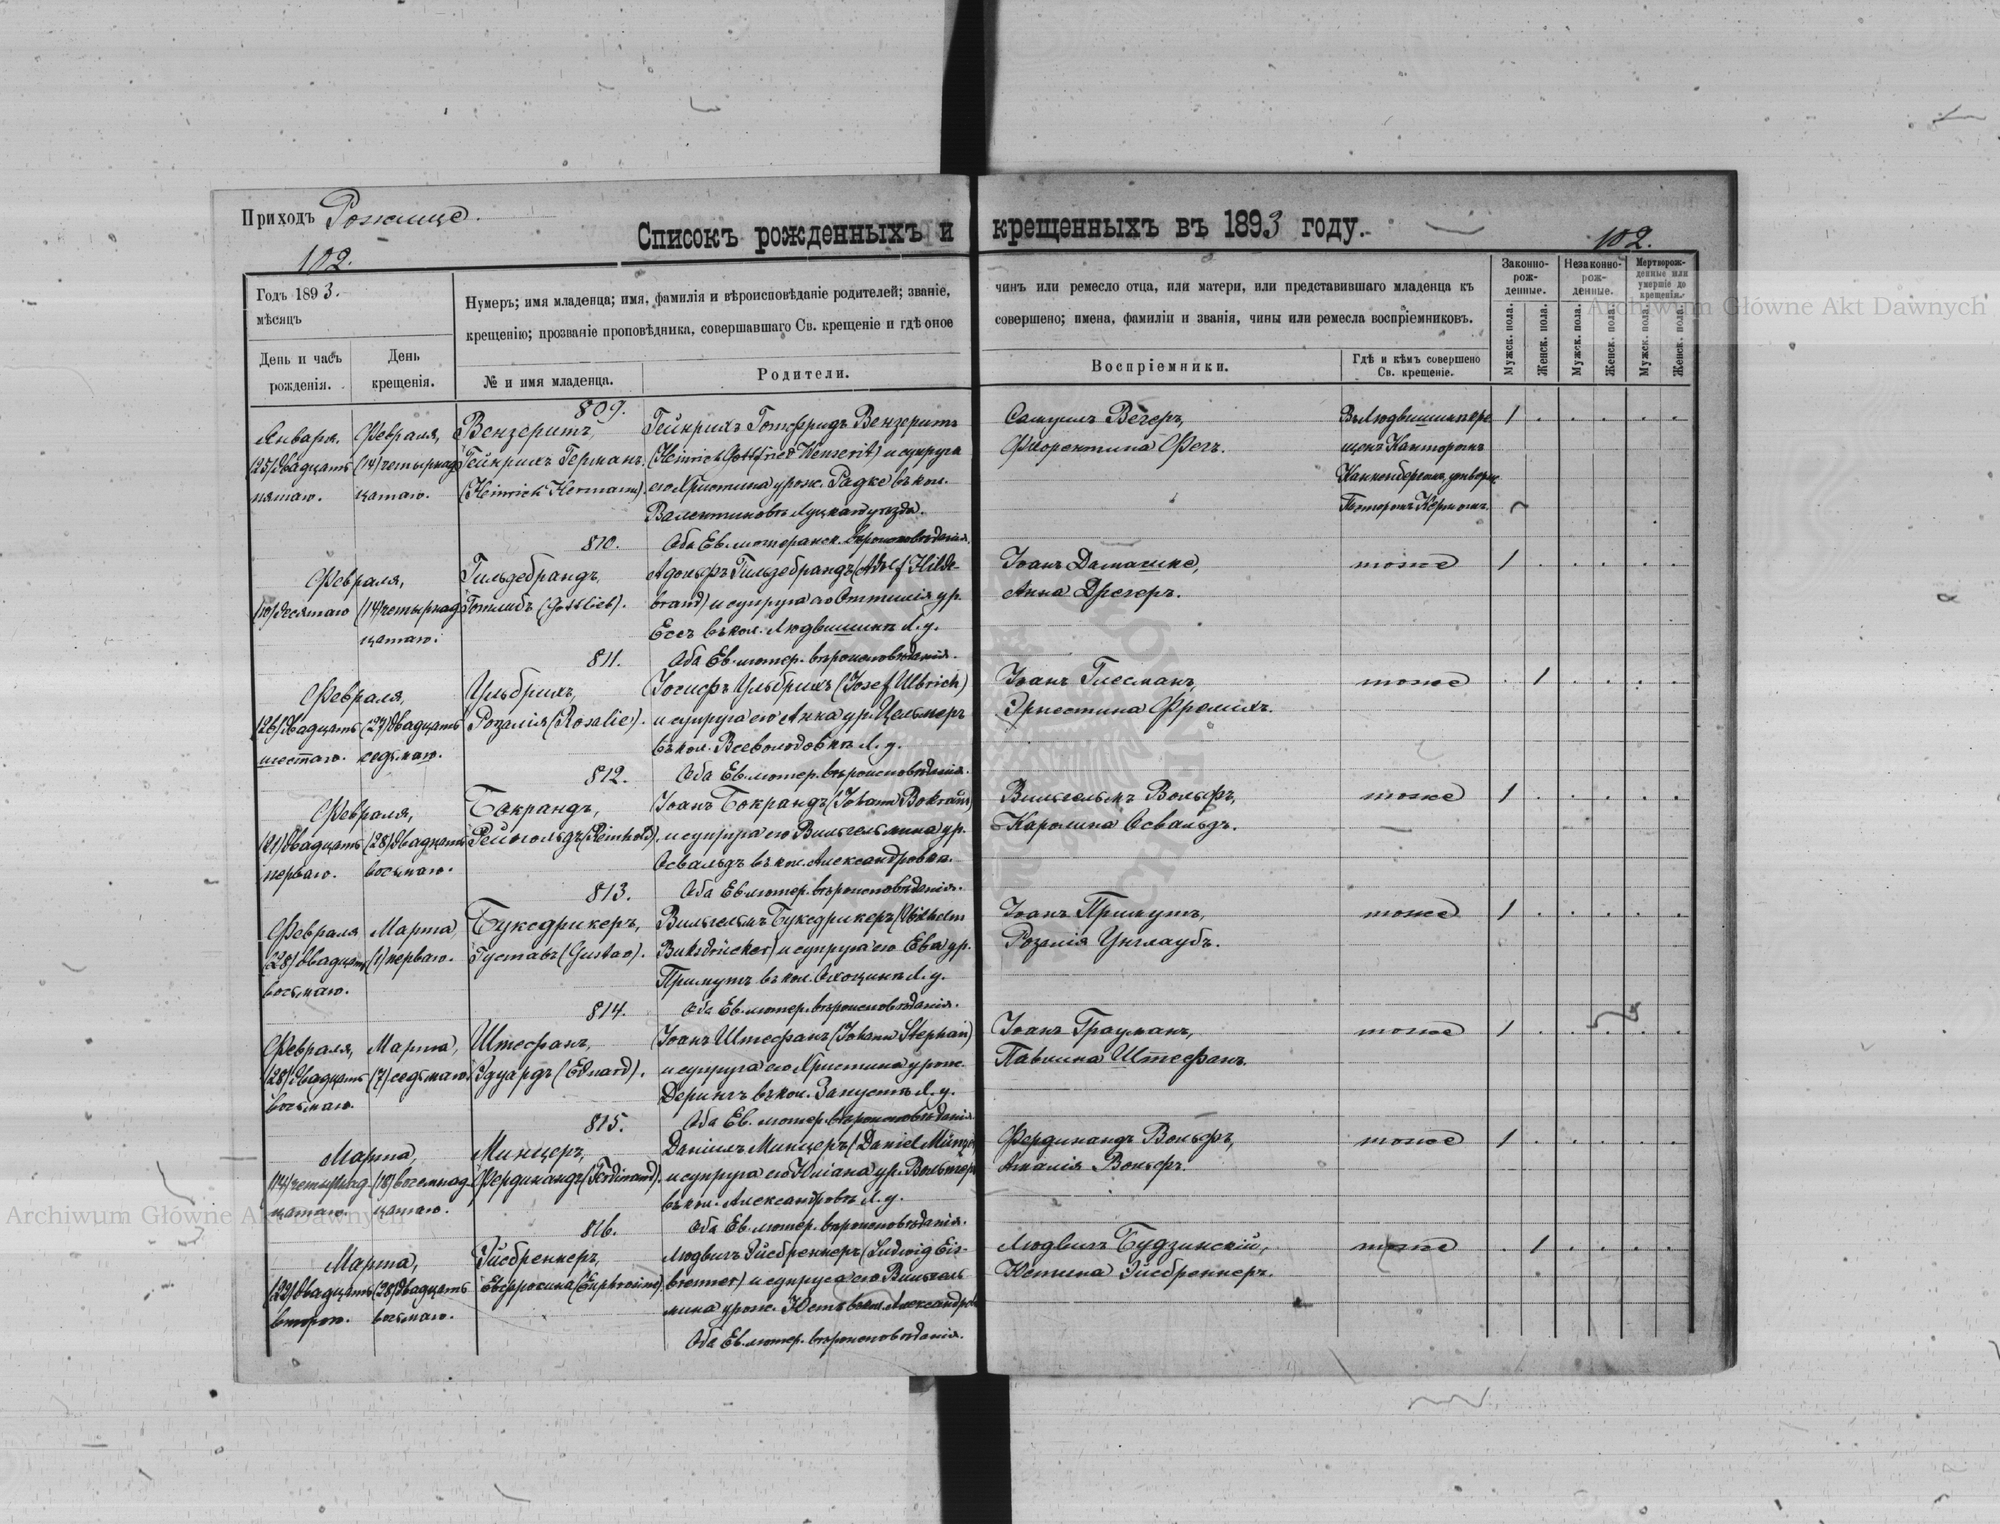 Приходъ Рожище.
Списокъ рожденныхъ и крещенныхъ въ 1893 году.
102.
102.
Годъ 1893.
мѣсяцъ
День и часъ рожденія.
День крещенія.
Нумеръ; имя младенца; имя, фамилія и вѣроисповѣданіе родителей; званіе,
крещенію; прозваніе проповѣдника, совершавшаго Св. крещеніе и гдѣ оное
№ и имя младенца.
Родители.
чинъ или ремесло отца, или матери, или представившаго младенца къ
совершено; имена, фамиліи и званія, чины или ремесла воспріемниковъ.
Воспріемники.
Гдѣ и кѣмъ совершено
Св. крещеніе.
Законно-
рож-
денные.
Незаконно-
рож-
денные.
Мертворож-
денные или
умершіе до
крещенія.
Мужск. пола.
Женск. пола.
Мужск. пола.
Женск. пола.
Мужск. пола.
Женск. пола.
809.
Января,
(25) двадцать
пятаго.
Февраля,
(14) четырнад
цатаго.
Вензеритъ,
Гейнрихъ Германъ.
(Heinrich Hermann).
Гейнрихъ Готфридъ Вензеритъ
(Heinrich Gottfried Wenserit) и супруга
его Христина урож. Радке въ кол.
Валентиновъ Луцкаго уѣзда.
Оба Ев. лютеранск. вѣроисповѣданія.
Самуилъ Вегеръ,
Флорентина Фегъ.
Въ Людвишинъ кре
щенъ Канторомъ
Пасторомъ Кермомъ.
1
810.
Февраля,
(10) десятаго
(14) четырнад
цатаго.
Гильдебрандъ,
Готлибъ (Gottlieb).
Адольфъ Гильдебрандъ (Adolf Hilde-
brand) и супруга его Оттилія ур.
Ессъ въ кол. Людвишинъ Л. у.
Оба Ев. лютер. вѣроисповѣданія.
Іоанъ Даташке,
Анна Дрегеръ.
тоже
1
811.
Февраля,
(26) двадцать
шестаго.
(27) двадцать
седьмаго.
Ульбрихъ,
Розалія (Rosalie).
Іосифъ Ульбрихъ (Josef Ulbrich)
и супруга его Анна ур. Цельмеръ
въ кол. Всеволодовкѣ Л. у.
Оба Ев. лютер. вѣроисповѣданія.
Іоанъ Глесманъ,
Эрнестина Фромихъ.
тоже
1
812.
Февраля,
(21) двадцать
перваго.
(28) двадцать
восьмаго.
Бокрандъ,
Рейнгольдъ (Reinhold).
Іоанъ Бокрандъ (Johann Bokrand)
и супруга его Вильгельмина ур.
Освальдъ въ кол. Александровка.
Оба Ев. лютер. вѣроисповѣданія.
Вильгельмъ Вольфъ,
Каролина Освальдъ.
тоже
1
813.
Февраля
(28) двадцать
восьмаго.
Марта,
(1) перваго.
Буксдрикеръ,
Густавъ (Gustav).
Вильгельмъ Буксдрикеръ (Wilhelm
Buksdrücker) и супруга его Ева ур.
Примутъ въ кол. Олоцинъ Л. у.
Оба Ев. лютер. вѣроисповѣданія.
Іоанъ Примутъ,
Розалія Унглаубъ.
тоже
1
814.
Февраля,
(28) двадцать
восьмаго.
Марта,
(7) седьмаго.
Штефанъ,
Эдуардъ (Eduard).
Іоанъ Штефанъ (Johann Stephan)
и супруга его Христина урож.
Дерингъ въ кол. Запустъ Л. у.
Оба Ев. лютер. вѣроисповѣданія.
Іоанъ Грауманъ,
Павлина Штефанъ.
тоже
1
815.
Марта,
(14) четырнад
цатаго.
(18) восемнад
цатаго.
Минцеръ,
Фердинандъ (Ferdinand).
Даніилъ Минцеръ (Daniel Münzer)
и супруга его Юліана ур. Вольтеръ
въ кол. Александровкѣ Л. у.
Оба Ев. лютер. вѣроисповѣданія.
Фердинандъ Вольфъ,
Амалія Вольфъ.
тоже
1
816.
Марта,
(22) двадцать
второго.
(28) двадцать
восьмаго.
Эйсбреннеръ,
Евфрозина (Euphrosine).
Людвигъ Эйсбреннеръ (Ludwig Eis-
brenner) и супруга его Вильгель
мина урож. Юстъ въ кол. Александров
Оба Ев. лютер. вѣроисповѣданія.
Людвигъ Будзинскій,
Юстина Эйсбреннеръ.
тоже
1
Archiwum Główne Akt Dawnych
Archiwum Główne Akt Dawnych